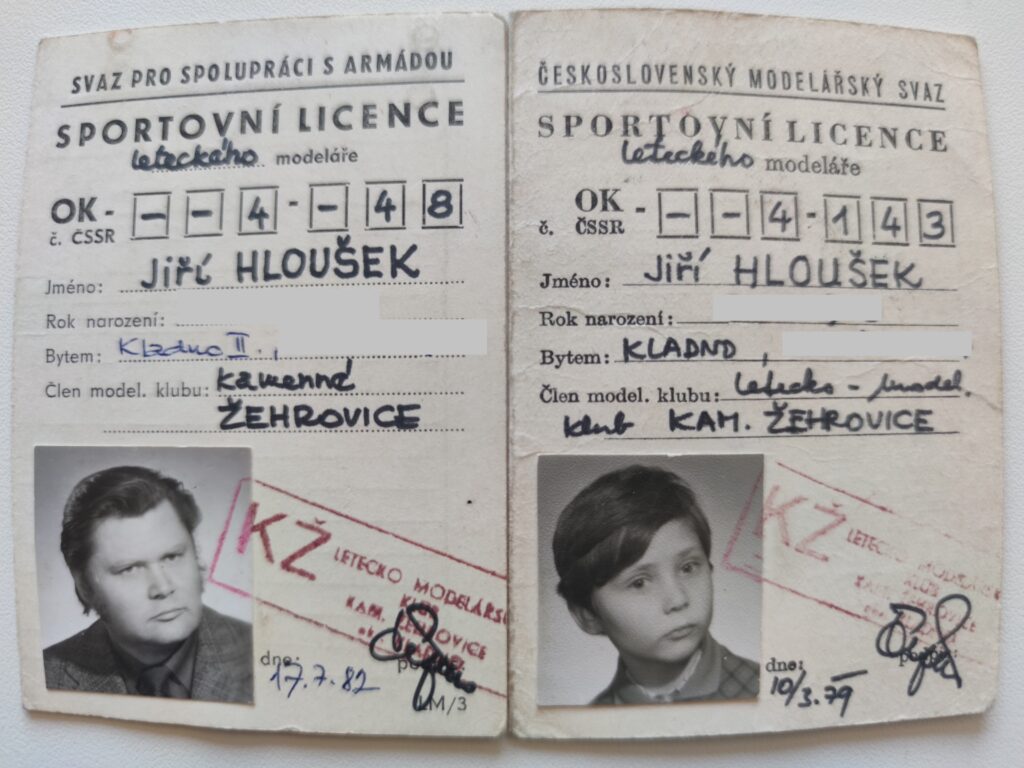 SVAZ PRO SPOLUPRÁCI S ARMÁDOU
SPORTOVNÍ LICENCE
leteckého modeláře
OK - - - 4 - - 4 8
č. ČSSR
Jméno: Jiří HLOUŠEK
Rok narození:
Bytem: Kladno II.,
Člen model. klubu: Kamenné
ŽEHROVICE
KŽ
LETECKO MODELÁŘSK
KLUB
KAM. ŽEHROVICE
dne: 17.7.82
LM/3
ČESKOSLOVENSKÝ MODELÁŘSKÝ SVAZ
SPORTOVNÍ LICENCE
leteckého modeláře
OK - - - 4 - 1 4 3
č. ČSSR
Jméno: Jiří HLOUŠEK
Rok narození:
Bytem: KLADNO,
Člen model. klubu: letecko - model.
klub KAM. ŽEHROVICE
KŽ
LETECKO MODELÁŘSK
KLUB
KAM. ŽEHROVICE
dne: 10/3.79